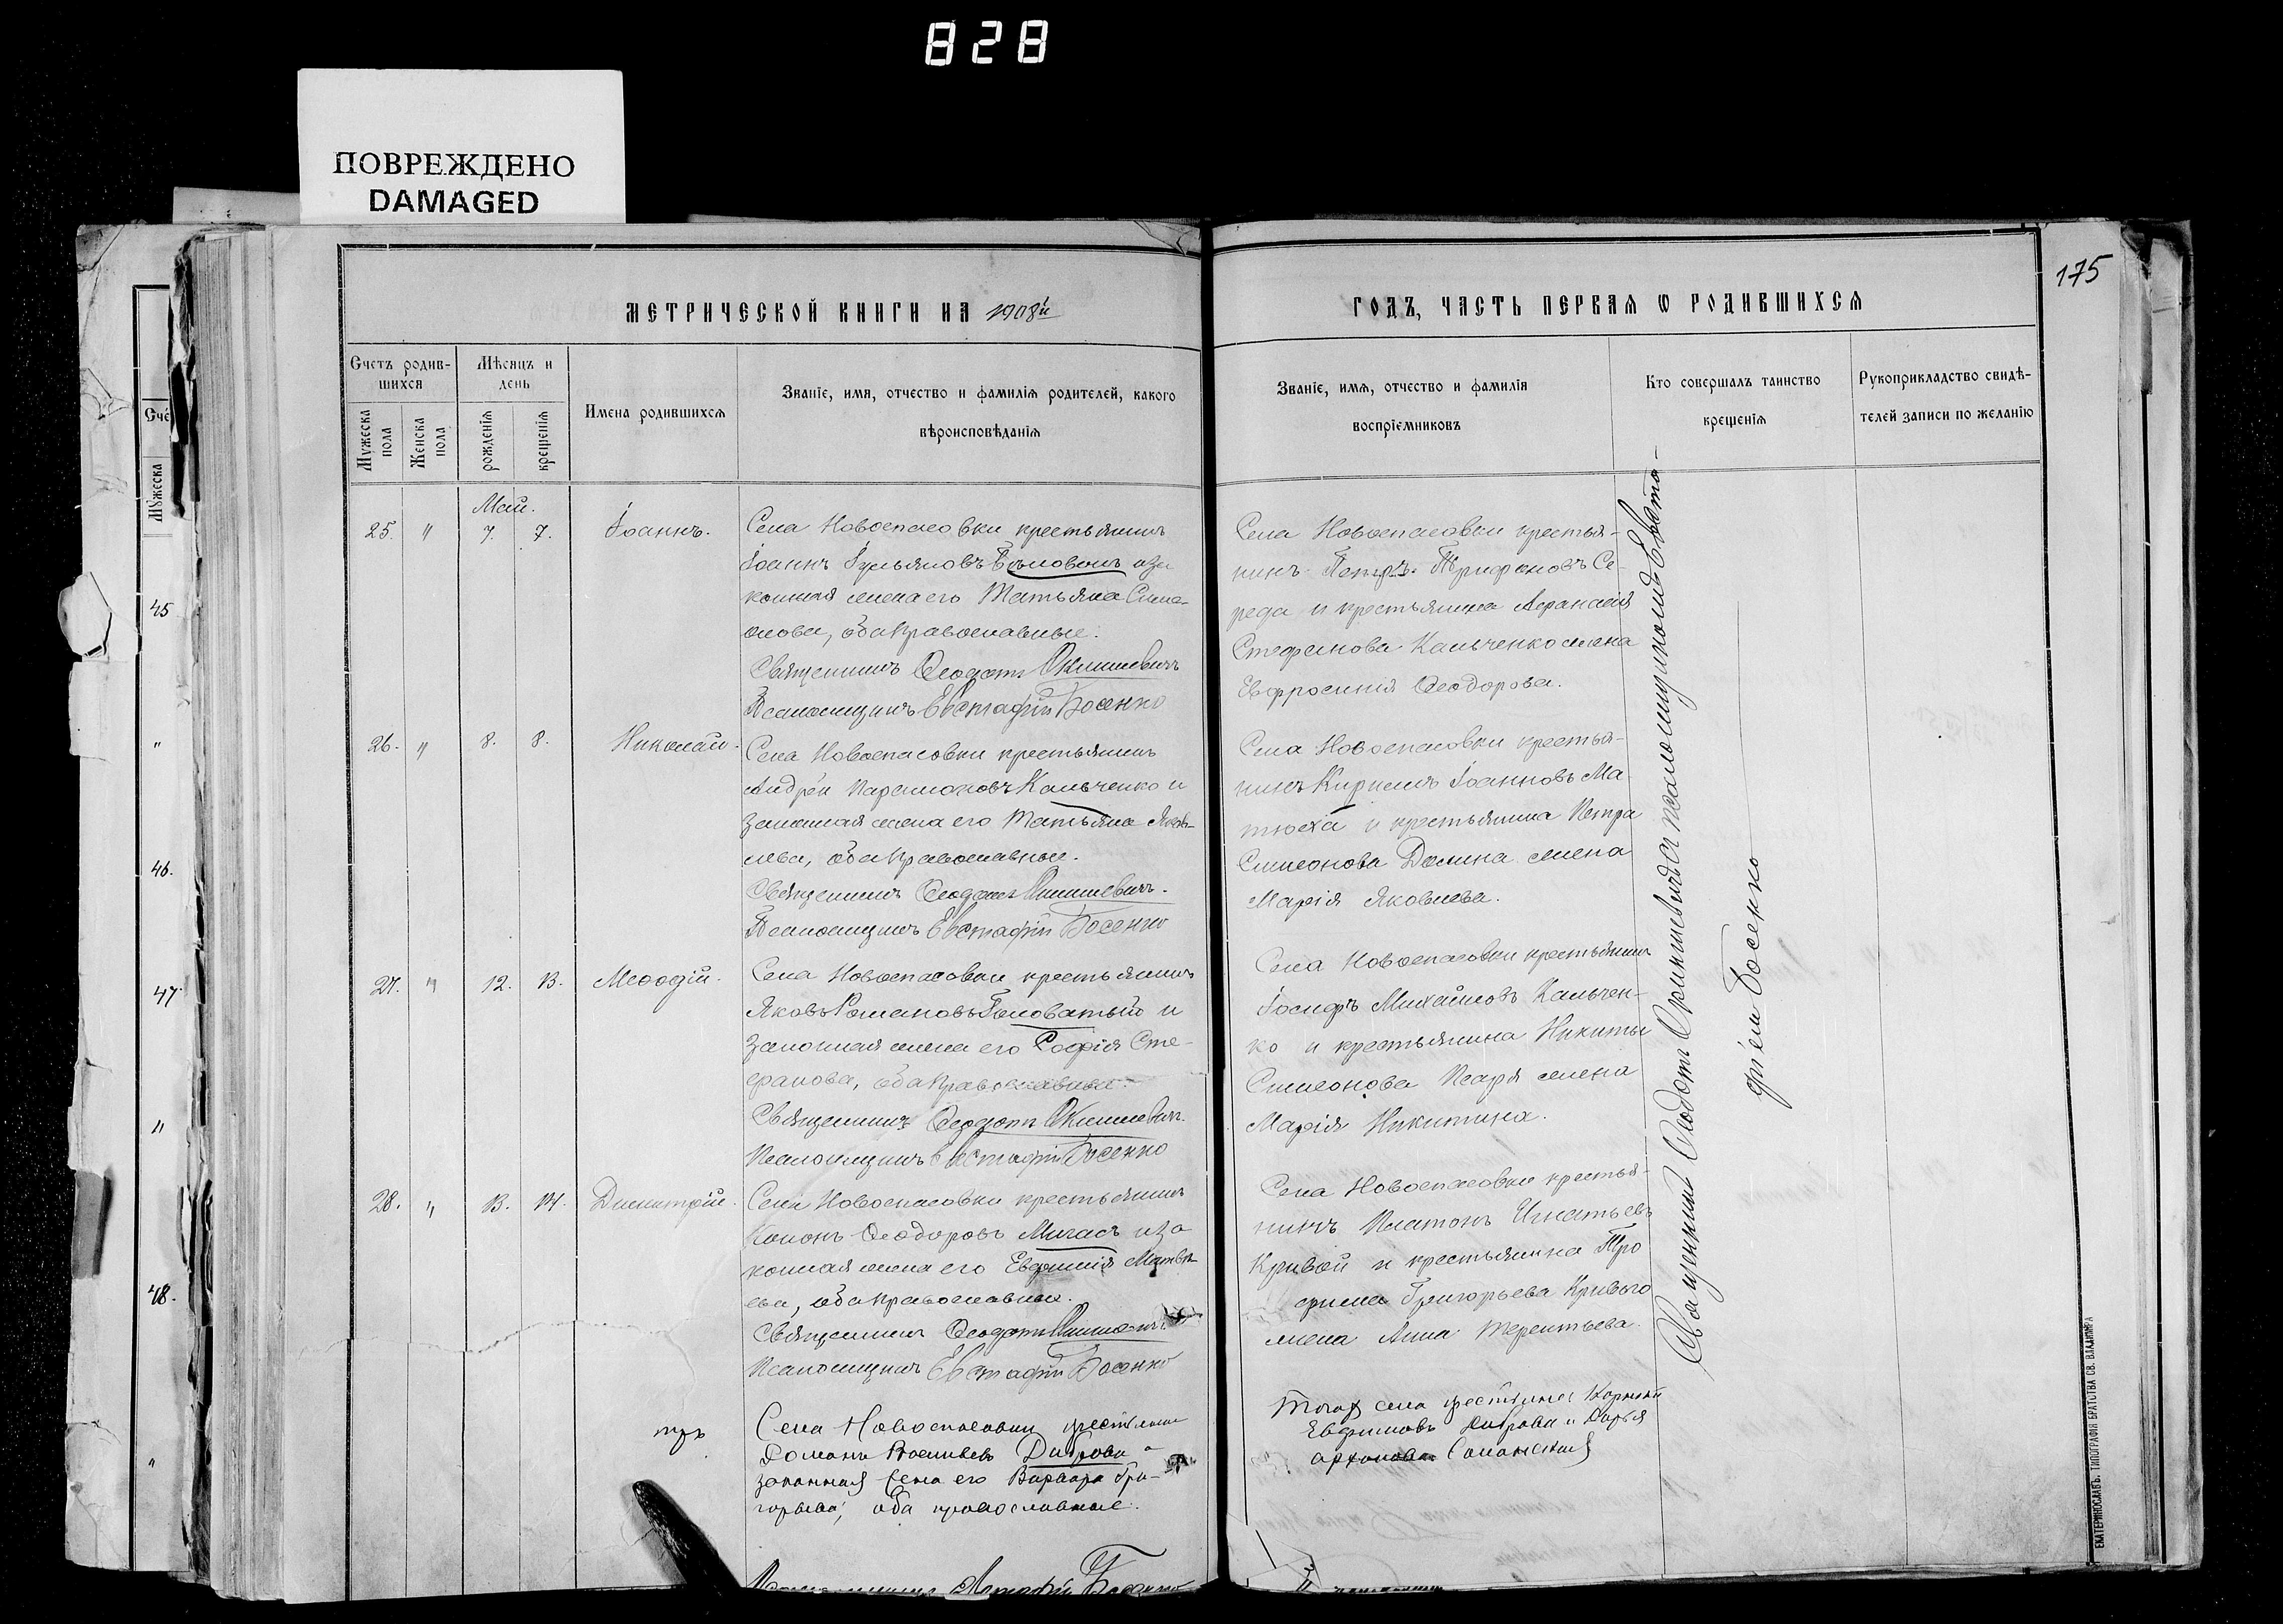 828
ПОВРЕЖДЕНО
DAMAGED
175
МЕТРИЧЕСКОЙ КНИГИ НА 1908й
ГОДЪ, ЧАСТЬ ПЕРВАЯ Ѡ РОДИВШИХСЯ
Счетъ родив-
шихся
Мужеска пола
Женска пола
Мѣсяцъ и
день
рожденія
крещенія
Имена родившихся
Званіе, имя, отчество и фамилія родителей, какого
вѣроисповѣданія
Званіе, имя, отчество и фамилія
воспріемниковъ
Кто совершалъ таинство
крещенія
Рукоприкладство свидѣ-
телей записи по желанію
Май.
25. " 7. 7. Іоаннъ.
Села Новоспасовки крестьянинъ
Іоаннъ Іульяновъ и за
конная жена его Татьяна Симе-
онова, оба православные.
Священникъ Ѳеодотъ
Псаломщикъ Евстафій Босенко
Села Новоспасовки крестья-
нинъ Петръ Трифоновъ Се-
реда и крестьянина Аѳанасія
Стефанова Кальченко жена
Евфросинія Ѳеодорова.
26. " 8. 8. Николай.
Села Новоспасовки крестьянинъ
Андрей Парамоновъ Кальченко и
законная жена его Татьяна Яков-
лева, оба православные.
Священникъ Ѳеодотъ
Псаломщикъ Евстафій Босенко
Села Новоспасовки крестья-
нинъ Кириллъ Іоанновъ Ма
тюха и крестьянина Петра
Симеонова Долина жена
Марія Яковлева.
27. " 12. 13. Меѳодій.
Села Новоспасовки крестьянинъ
Яковъ Романовъ Головатый и
законная жена его Софія Сте-
фанова, оба православные.
Священникъ Ѳеодотъ
Псаломщикъ Евстафій Босенко
Села Новоспасовки крестьянинъ
Іосифъ Михайловъ Кальчен-
ко и крестьянина Никиты
Симеонова жена
Марія Никитина.
28. " 13. 14. Димитрій.
Села Новоспасовки крестьянинъ
Кононъ Ѳеодоровъ и за
конная жена его Евфимія Матвѣ-
ева, оба православные.
Священникъ Ѳеодотъ
Псаломщикъ Евстафій Босенко
Села Новоспасовки крестья-
нинъ Платонъ Игнатьевъ
Кривой и крестьянина Тро
фима Григорьева Кривого
жена Анна Терентьева.
Села Новоспасовки крестьянинъ
Романъ Васильевъ Диброва и
законная жена его Варвара Гри-
горьева, оба православные.
Евстафій Босенко
Тогоже села крестьянинъ Корнилій
Евфимовъ Диброва и Дарья
Священникъ Ѳеодотъ съ псаломщикомъ Евста-
фіемъ Босенко
ЕКАТЕРИНОСЛАВЪ. ТИПОГРАФІЯ БРАТСТВА СВ. ВЛАДИМІРА
Сче
Мужеска
45
"
46.
47
"
48.
"